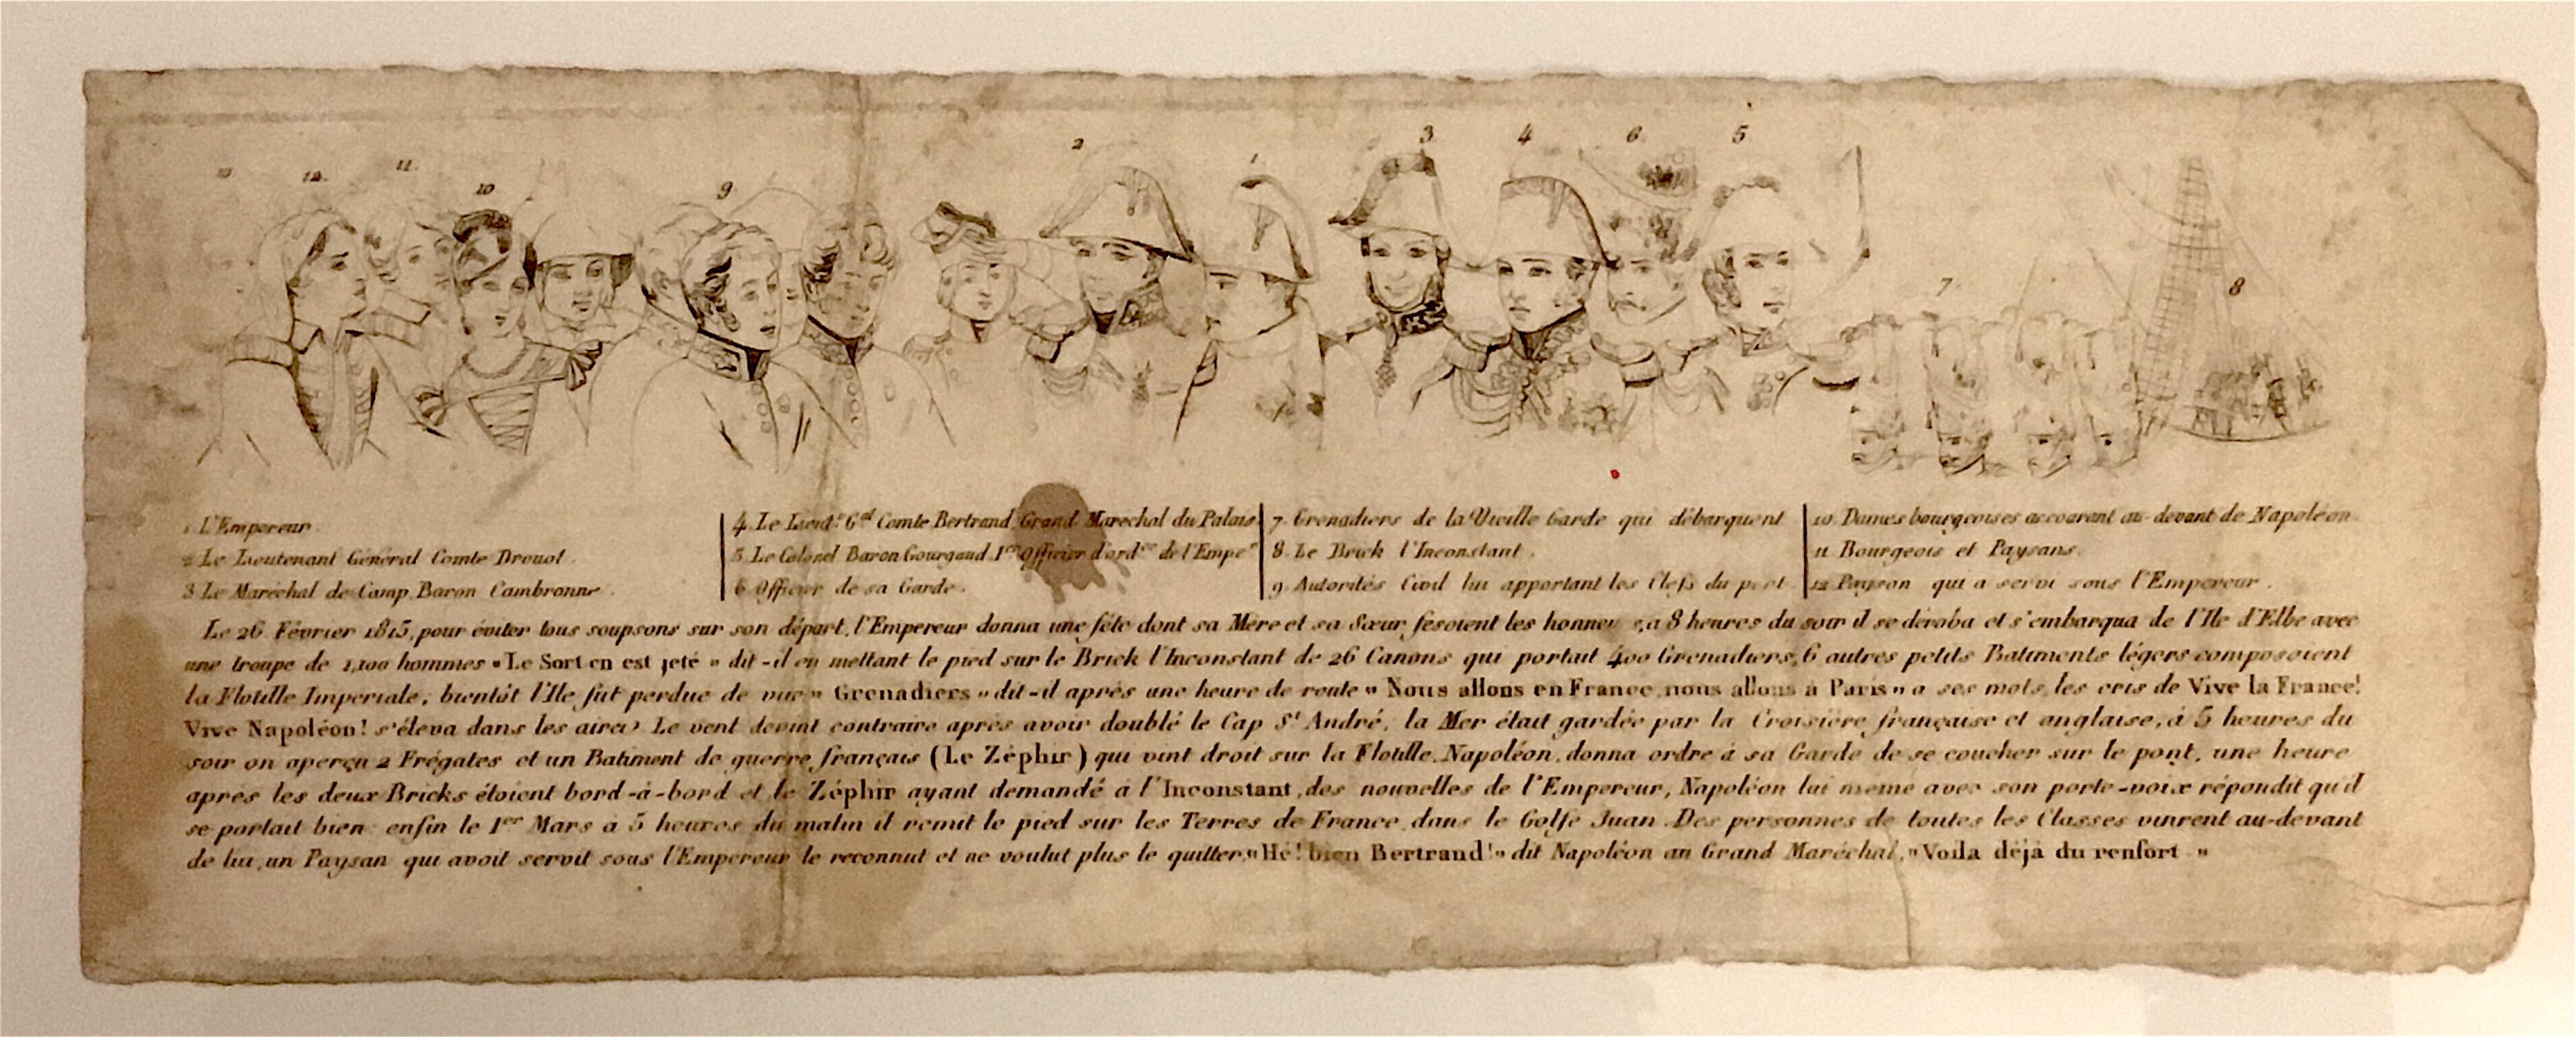 13 12 11 10 9 2 1 3 4 6 5
7 8
1. L'Empereur.
2. Le Lieutenant Général Comte Drouot.
3. Le Maréchal de Camp, Baron Cambronne.
4. Le Lieut.t G.al Comte Bertrand, Grand Marechal du Palais.
5. Le Colonel Baron Gourgaud, 1.er Officier d'ord.ce de l'Emp.r
6. Officier de sa Garde.
7. Grenadiers de la Vieille Garde qui débarquent
8. Le Brick l'Inconstant.
9. Autorités Civil lui apportant les Clefs du port
10. Dames bourgeoises accourant au-devant de Napoléon
11. Bourgeois et Paysans.
12. Paysan qui a servi sous l'Empereur.
Le 26 Février 1815, pour éviter tous soupsons sur son départ, l'Empereur donna une fête dont sa Mère et sa Sœur fesoient les, a 8 heures du soir il se déroba et s'embarqua de l'Ile d'Elbe avec
une troupe de 1,100 hommes « Le Sort en est jeté » dit-il en mettant le pied sur le Brick l'Inconstant de 26 Canons qui portait 400 Grenadiers, 6 autres petits Batiments légers composoient
la Flotille Imperiale, bientôt l'Ile fut perdue de vue » Grenadiers » dit-il après une heure de route » Nous allons en France, nous allons à Paris » a ses mots, les cris de Vive la France!
Vive Napoléon! s'éleva dans les aires Le vent devint contraire après avoir doublé le Cap S.t André, la Mer était gardée par la Croisière française et anglaise, à 5 heures du
soir on aperçu 2 Frégates et un Batiment de guerre français (Le Zéphir) qui vint droit sur la Flotille, Napoléon, donna ordre à sa Garde de se coucher sur le pont, une heure
apres les deux Bricks étoient bord-à-bord et le Zéphir ayant demandé à l'Inconstant, des nouvelles de l'Empereur, Napoléon lui meme avec son porte-voix répondit qu'il
se portait bien enfin le 1.er Mars a 5 heures du matin il remit le pied sur les Terres de France, dans le Golfe Juan. Des personnes de toutes les Classes vinrent au-devant
de lui, un Paysan qui avoit servit sous l'Empereur le reconnut et ne voulut plus le quitter, « Hé! bien Bertrand! » dit Napoléon au Grand Maréchal, » Voila déjà du renfort. »